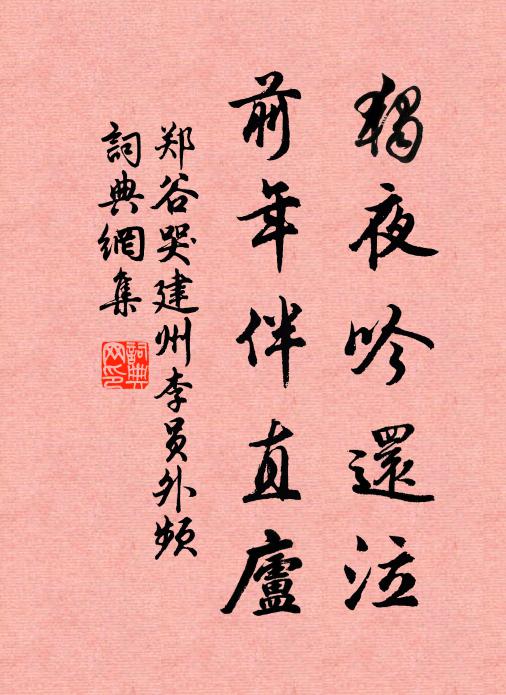 獨夜吟還泣
前年伴直廬
郑谷哭建州李員外频
詞典網集
詞典網印